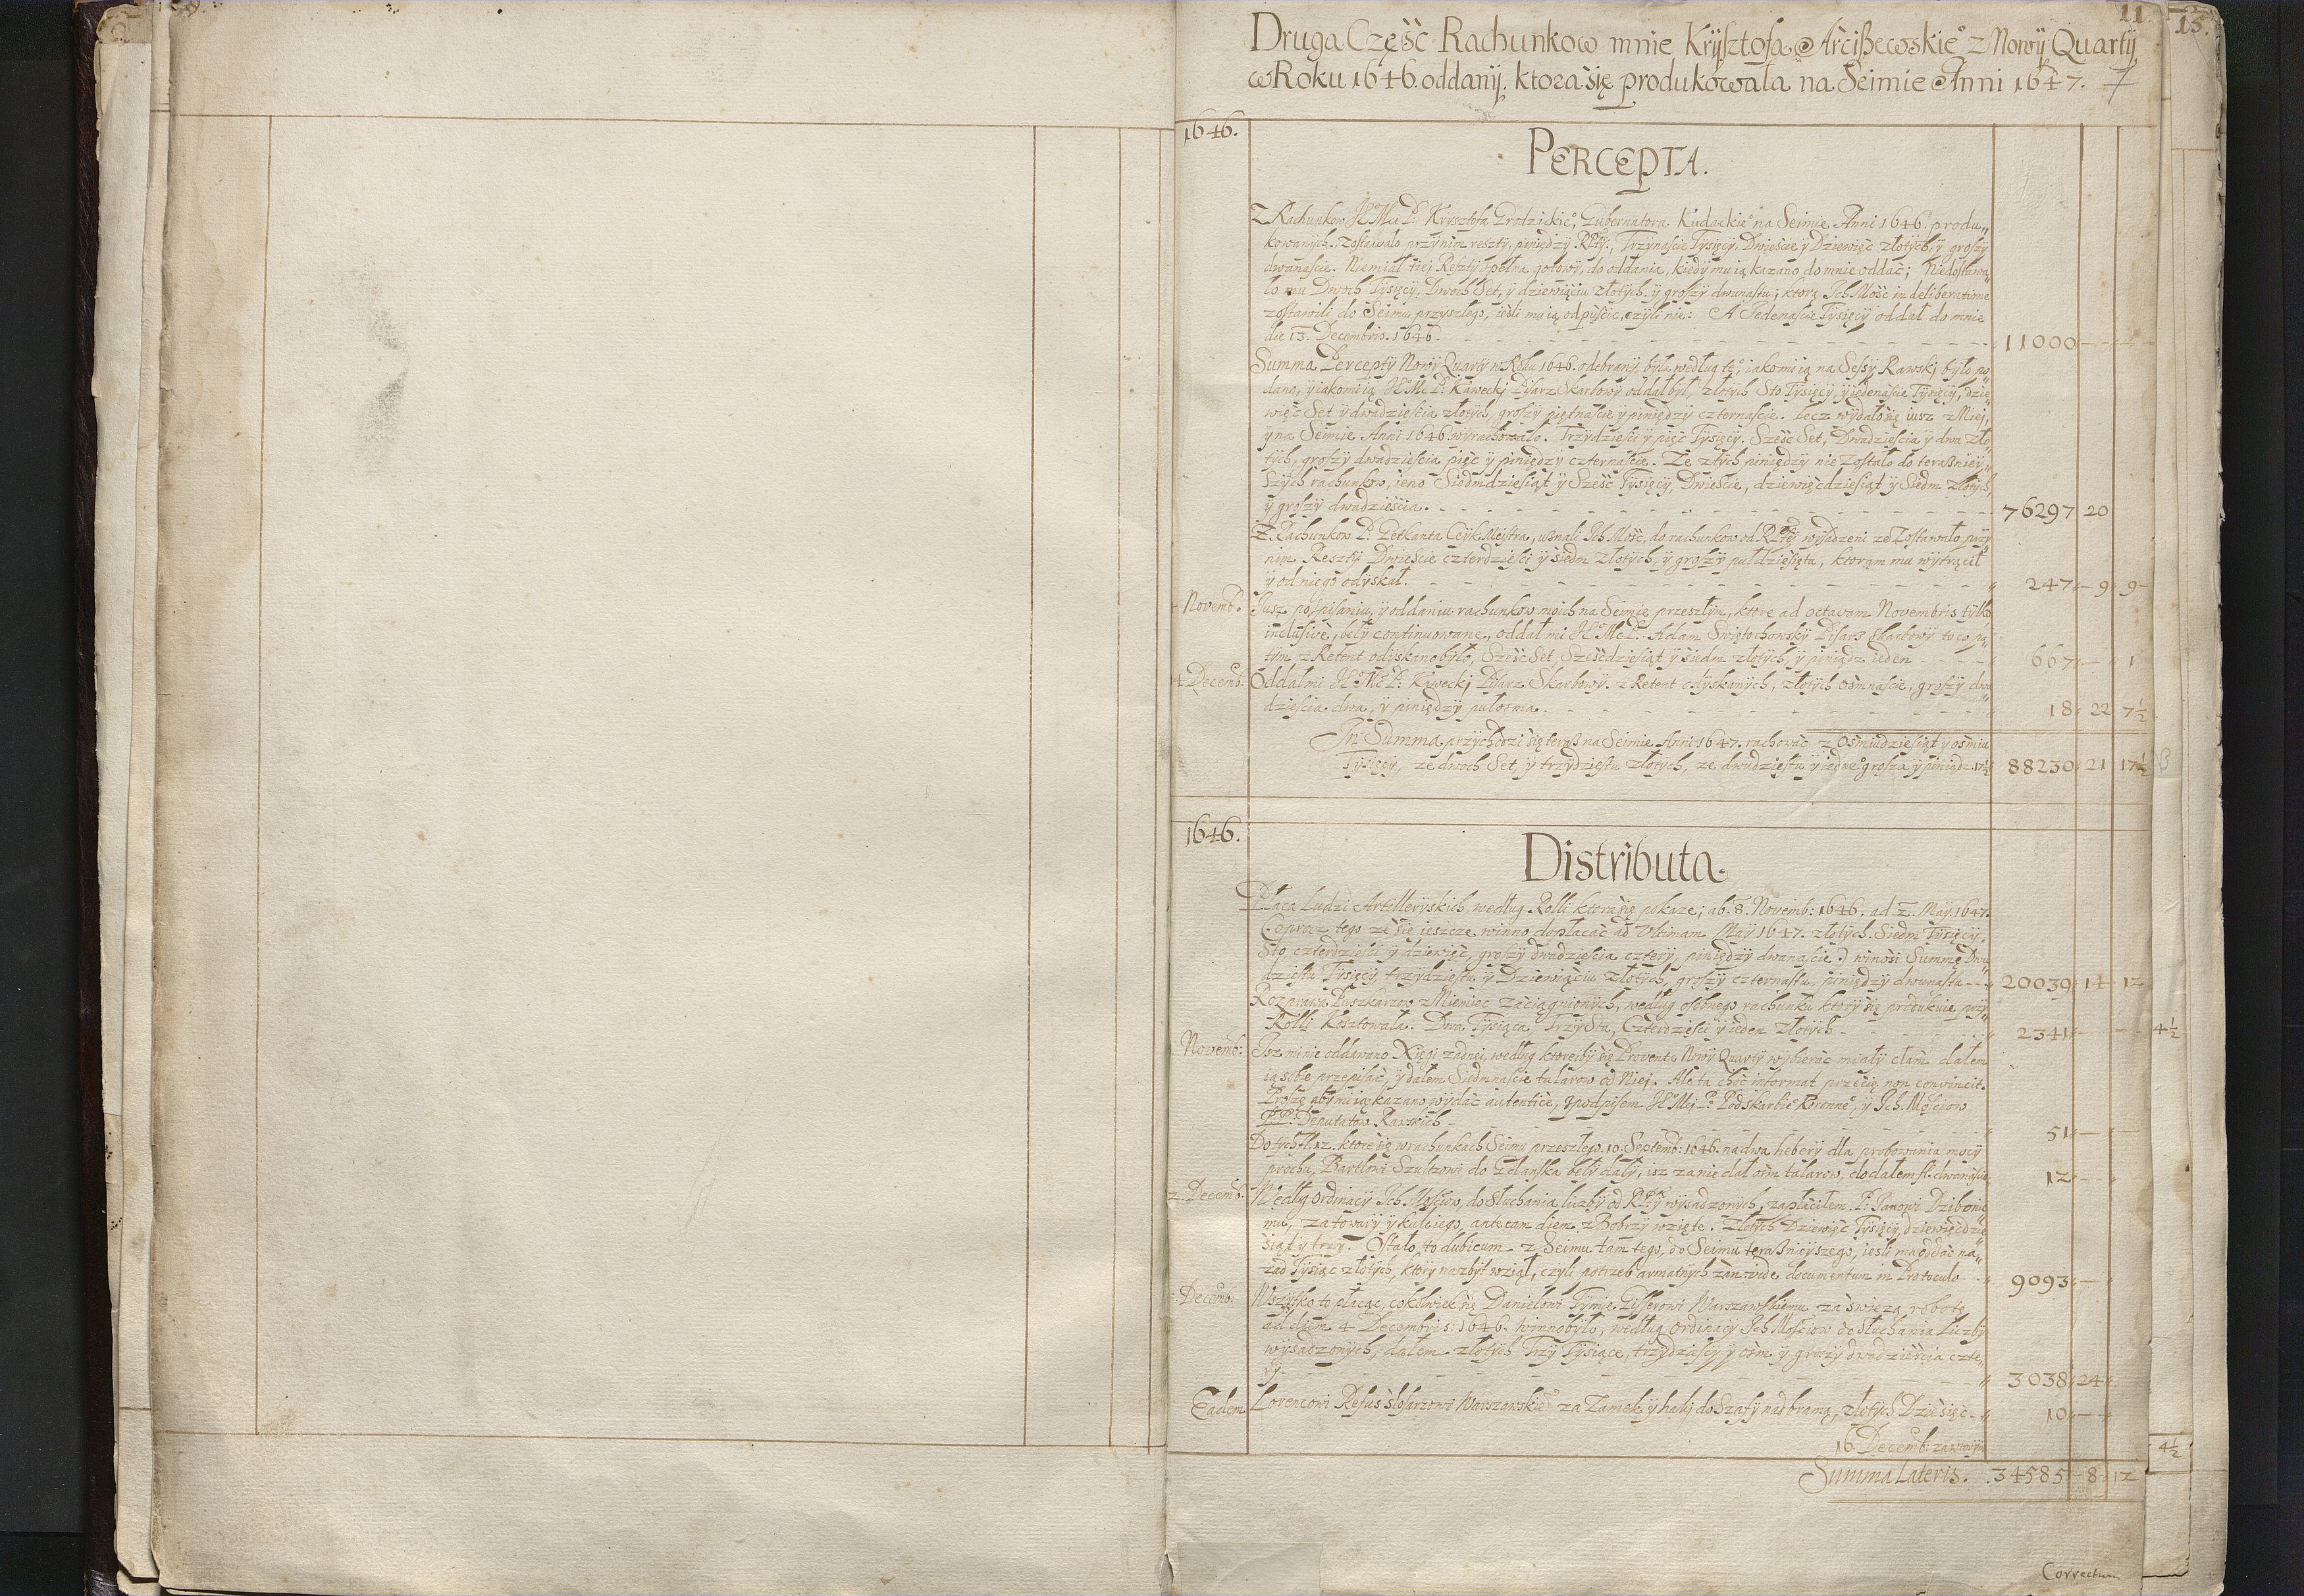 11.
15.
Druga Częsć Rachunkow mnie Krysztofa Arcißewskie° z Nowÿ Quartÿ
w Roku 1646. oddanÿ. ktora się produkowala na Seimie Anni 1647.
1646.
PERCEPTA.
Z Rachunkow Krysztofa Grodzickie°, Gubernatora Kudackie° na Seimie Anni 1646 produ„
kowanÿch, zostawało przÿ nim resztÿ, piniędzÿ Rptÿ, Trzÿnascie Tysięcÿ, Dwiescie ÿ Dziewięć złotÿch, ÿ groszÿ
dwanascie. Niemiał tiej Resztÿ spełna gotowÿ, do oddania, kiedÿ mu ią kazano do mnie oddać; Niedostawa„
ło mu Dwoch Tysięcÿ, Dwoch Set, ÿ dziewiąciu złotÿch, ÿ groszÿ dwunastu; ktorą Ich Mość in deliberatione
zostawili do Seimu przyszłego, iesli mu ią odpuścić, czÿli nie: A Jedenascie Tysięcÿ oddał do mnie
die 13. Decembris. 1646. 11000
Summa Perceptÿ Nowÿ Quartÿ w Roku 1646. odebranÿ, była według te°, iako mi ią na Sessÿ Rawskj było po„
dano, ÿ iako mi ią Kaweckj Pisarz Skarbowÿ oddał był, złotÿch Sto Tysięcÿ, ÿ iedenascie Tysięcÿ, dzie„
więć Set ÿ dwadziescia złotÿch, groszÿ piętnascie ÿ piniędzÿ czternascie. lecz wÿdało się iusz z Niej,
ÿ na Seimie Anni 1646 wÿrachowało. Trzÿdziesci ÿ pięć Tysięcÿ. Szesć Set, Dwadziescia ÿ dwa zło„
tÿch, groszÿ dwadziescia pięć ÿ piniędzÿ czternascie. Ze złtÿch piniędzÿ nie zostało do teraßnieÿ„
szÿch rachunkow, ieno Siedmdziesiąt ÿ Szesć Tysięcÿ, Dwiescie, dziewięćdziesiąt ÿ Siedm złotÿch,
ÿ groszÿ dwadziescia. 76297 20
Z Rachunkow P. Getkanta Ceÿkmeistra, uznali Ich Mość, do rachunkow od Rptÿ wÿsadzeni ze zostawało przÿ
nim Resztÿ Dwiescie czterdziesci ÿ siedm złotÿch, ÿ groszÿ pułdziesiąta, ktorąm mu wÿtrącił
ÿ od niego odÿskał. 247 9 9
Novemb. Jusz po spisaniu, ÿ oddaniu rachunkow moich na Seimie przeszłÿm, ktore ad octavam Novembris tÿlko
inclusivè, belÿ continuowane, oddał mi Adam Swiętochowskÿ Pisarz Skarbowÿ to co po„
tÿm z Retent odÿskano bÿło, Szesć Set, Szesćdziesiąt ÿ siedm złotÿch, ÿ piniądz ieden 667 1
4 Decemb. Oddał mi Kaweckj Pisarz Skarbowÿ z Retent odÿskanÿch, złotÿch osmnascie, groszÿ dwa„
dziescia dwa, ÿ piniędzÿ pułosma. 18 22 7½
In Summa przÿchodzi się teraß na Seimie Anni 1647. rachować z Osmiudziesiąt ÿ osmiu
Tysięcÿ, ze dwoch Set, ÿ trzÿdziestu złotÿch, ze dwudziestu ÿ iedne° grosza ÿ piniądz. 17½ 88230 21 17½
1646.
Distributa.
Płaca Ludzi Artillerÿskich, według Rolli ktora się pokaze; ab. 8. Novemb: 1646. ad 2. Maÿ. 1647.
(oprocz tego ze się ieszcze winno dopłacać ad Vltimam Maÿ 1647. złotÿch Siedm Tysięcÿ,
Sto czterdziesci ÿ dziewięć, groszÿ dwadziescia czterÿ, piniędzÿ dwanascie.) winosi Summę Dwu„
dziestu Tysięcÿ, trzÿdziestu ÿ Dziewiąciu złotÿch, groszÿ czternastu, piniędzÿ dwunastu 20039 14 12
Rozprawa Puszkarzow z Niemiec zaciągnionÿch, według osobnego rachunku ktorÿ się produkuie przÿ
Rolli Kosztowała. Dwa Tysiąca Trzÿ Sta, Czterdziesci ÿ ieden złotÿch 2341
4½
Novemb: Isz mi nie oddawano Xięgi zadnej, według ktorejbÿ się Proventa Nowÿ Quartÿ wÿbierać miałÿ dałem
ią sobie przepisać, ÿ dałem Siedmnascie talarow od Niej. Ale ta choć informat przecię non convincit.
Proszę abÿ mi ią kazano wÿdać autenticè, z podpisem Podskarbie° Koronne°, ÿ Ich Mościow
PP. Deputatow Rawskich 51
Do tÿch fl. 12. ktore się w rachunkach Seimu przeszłego 10. Septemb: 1646. na dwa heberÿ dla probowania mocÿ
prochu, Bartłowi Szultzowi do Gdańska belÿ dałÿ, isz za nie dał osm talarow, dodałem fl. dwanascie 12
2. Decemb. Według ordinacÿ Ich Mościow, do słuchania liczbÿ od Rptÿ wÿsadzonÿch, zapłaciłem P. Janowi Dziboni„
mu, za towarÿ ÿ kule iego, ante eam diem z Bobrzÿ wzięte. złotÿch Dziewięć Tysięcÿ, dziewięćdzie„
siąt ÿ trzÿ. Ostało to dubium z Seimu tamtego, do Seimu teraßnieÿszego, iesli ma oddać na„
zad Tysiąc złotÿch, ktorÿ nazbÿt wziął, czÿli potrzeb armatnÿch zań. vide documentum in Protocolo 9093
Decemb. Wszÿtko to płacąc, cokolwiek się Danielowi Tÿmie Gisserowi Warszawskiemu za świezą robotę
ad diem 4 Decembris: 1646. winno bÿło, według ordinacÿ Ich Mościow do słuchania Liczbÿ
wÿsadzonÿch, dałem złotÿch Trzÿ Tysiące, trzÿdziescÿ ÿ osm ÿ groszÿ dwadziescia czte„
rÿ 3038 24
Eadem Lorencowi Refus slosarzowi Warszawskie° za Zamek ÿ haki do Szafÿ nad bramą, złotÿch Dziesięć 10
16 Decemb.
4½
Summa Lateris. 34585 8 12
Correctum